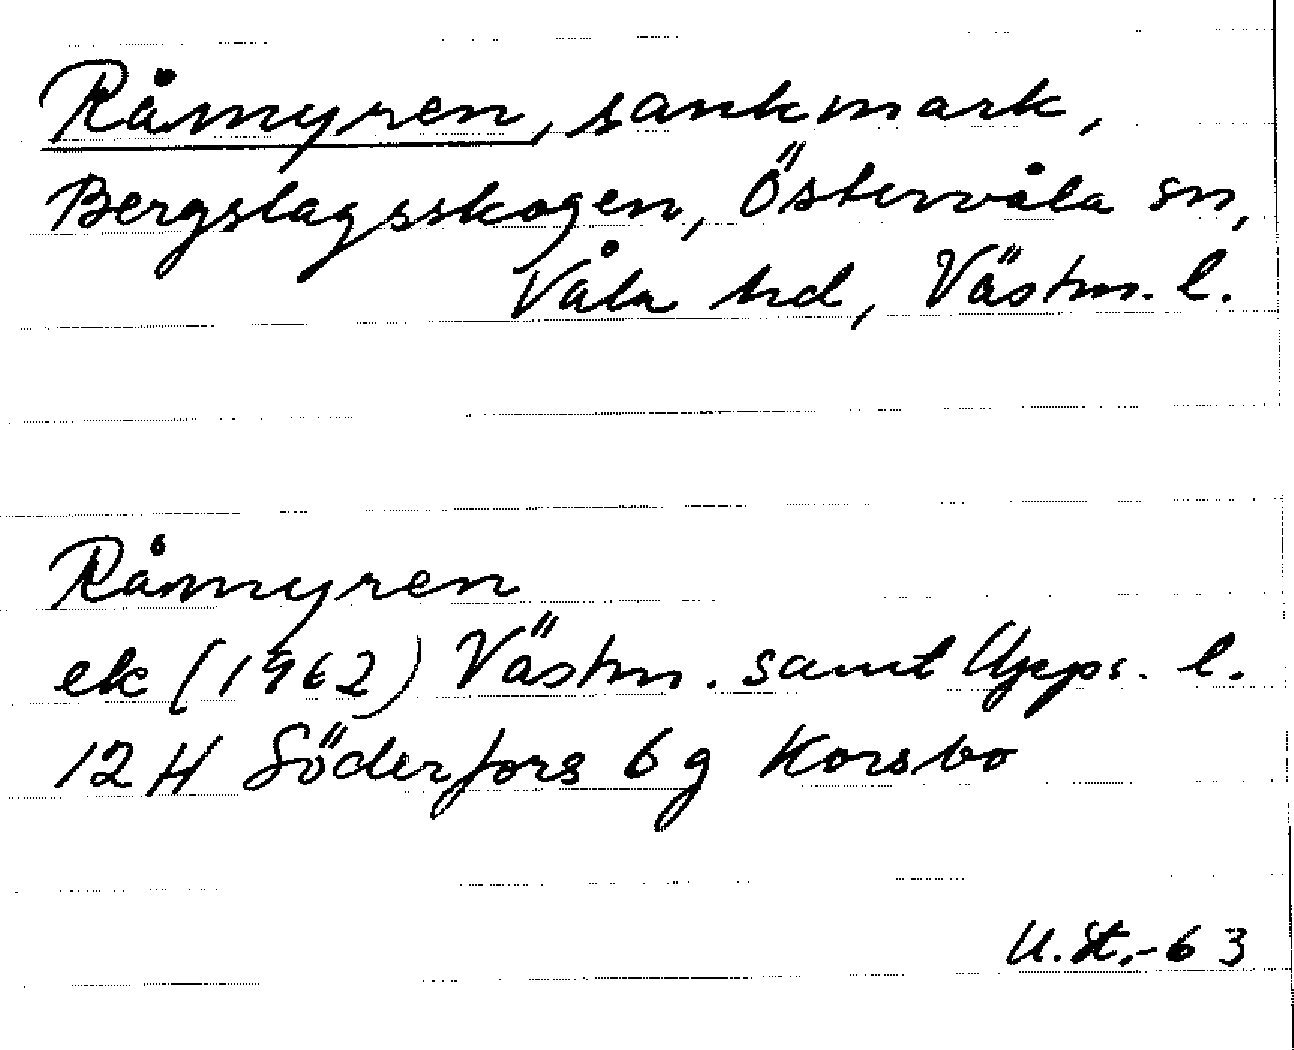 Råmyren, sankmark,
Bergslagsskogen, Östervåla sn,
Våla hd, Västm. l.
Råmyren
ek (1962) Västm. samt Upps. l.
12H Söderfors 6g Korsbo
U.St.-63